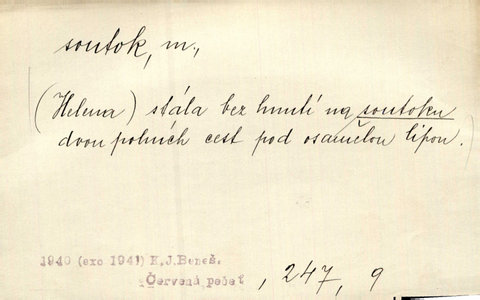 soutok, m.,
(Helena) stála bez hnutí na soutoku
dvou polních cest pod osamělou lipou.)
1940 (exc 1941) K.J.Beneš,
Červená pečeť , 247, 9